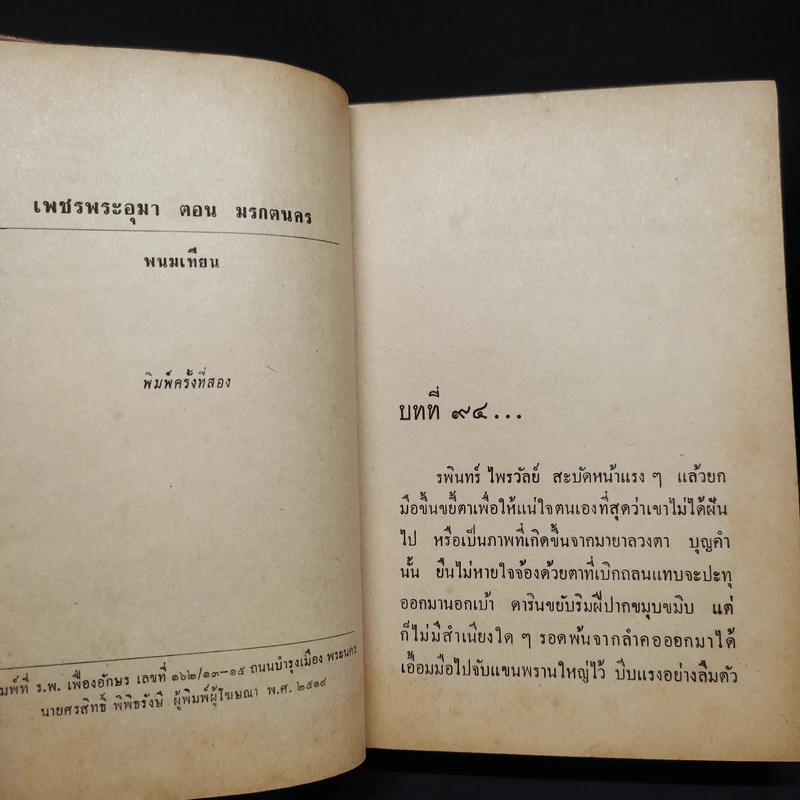 เพชรพระอุมา ตอน มรกตนคร
พนมเทียน
พิมพ์ครั้งที่สอง
ร.พ. เฟื่องอักษร เลขที่ ๑๖๒/๑๓-๑๕ ถนนบำรุงเมือง พระนคร
นายศรสิทธิ์ พิพิธรังษี ผู้พิมพ์ผู้โฆษณา พ.ศ. ๒๕๑๔
บทที่ ๙๔...
รพินทร์ ไพรวัลย์ สะบัดหน้าแรง ๆ แล้วยก
มือขึ้นขยี้ตาเพื่อให้แน่ใจตนเองที่สุดว่าเขาไม่ได้ฝัน
ไป หรือเป็นภาพที่เกิดขึ้นจากมายาลวงตา บุญคำ
นั้น ยืนไม่หายใจจ้องด้วยตาที่เบิกถลนแทบจะปะทุ
ออกมานอกเบ้า ดารินขยับริมฝีปากขมุบขมิบ แต่
ก็ไม่มีสำเนียงใด ๆ รอดพ้นจากลำคอออกมาได้
เอื้อมมือไปจับแขนพรานใหญ่ไว้ บีบแรงอย่างลืมตัว